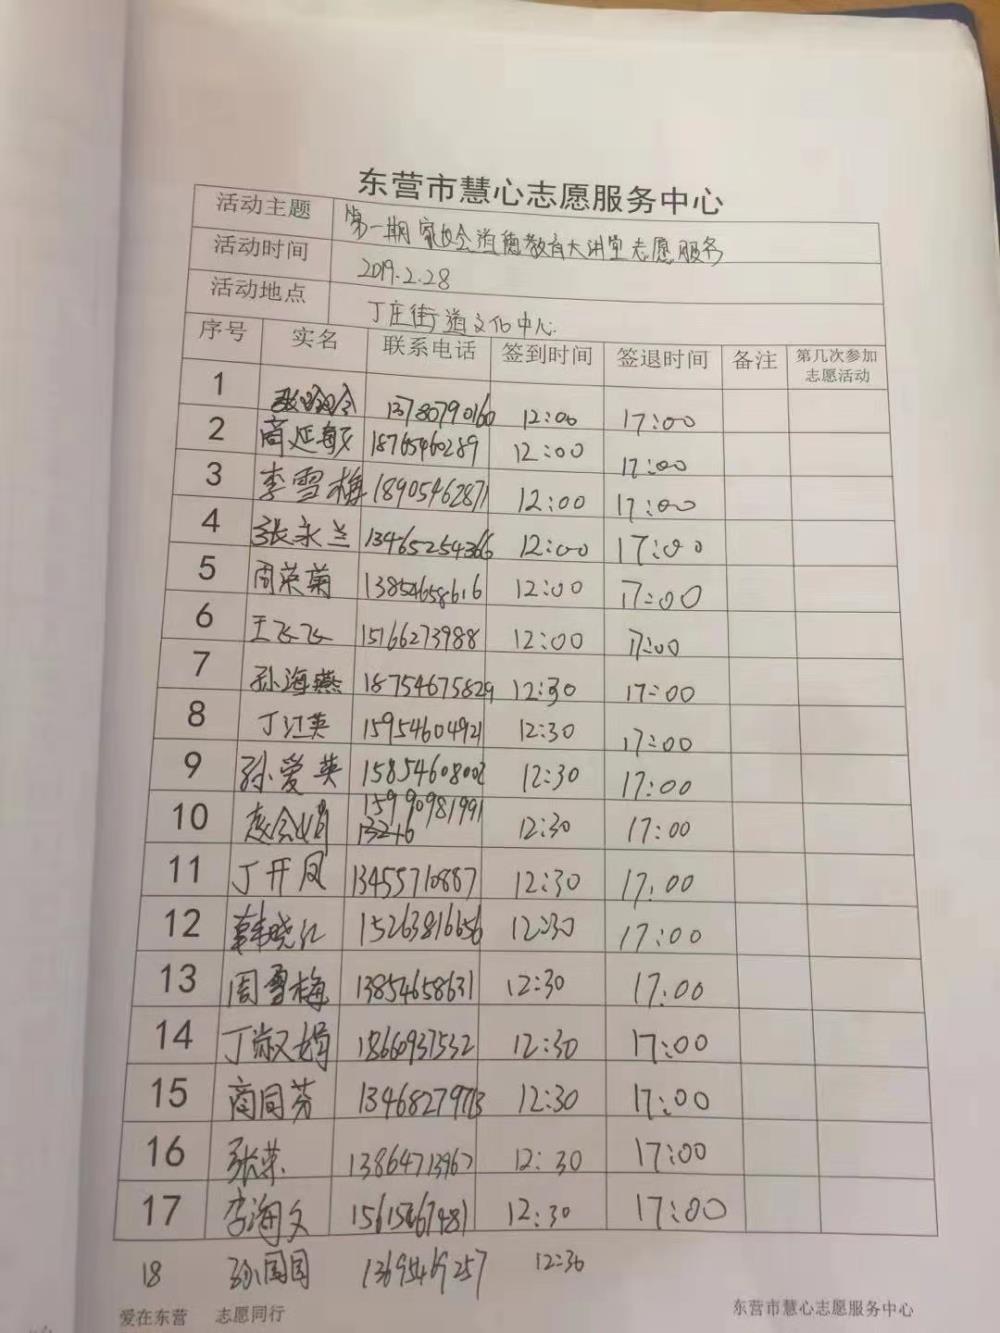 东营市慧心志愿服务中心
活动主题 第一期家长会道德教育大讲堂志愿服务
活动时间 2019.2.28
活动地点 丁庄街道文化中心
序号 实名 联系电话 签到时间 签退时间 备注 第几次参加志愿活动
1 13780790160 12:00 17:00
2 商延敏 18765460289 12:00 17:00
3 李雪梅 18905462871 12:00 17:00
4 张永兰 13465254366 12:00 17:00
5 周荣菊 13854658616 12:00 17:00
6 王飞飞 15166273988 12:00 17:00
7 孙海燕 18754675829 12:30 17:00
8 丁江英 15954604921 12:30 17:00
9 孙爱英 15854608002 12:30 17:00
10 15990981991 12:30 17:00
11 丁开凤 13455710887 12:30 17:00
12 韩晓红 15263816656 12:30 17:00
13 周雪梅 13854658631 12:30 17:00
14 丁淑娟 18660937532 12:30 17:00
15 商同芬 13468279713 12:30 17:00
16 张荣 13864713967 12:30 17:00
17 李海文 12:30 17:00
18 孙园园 13695469257 12:30
爱在东营 志愿同行 东营市慧心志愿服务中心